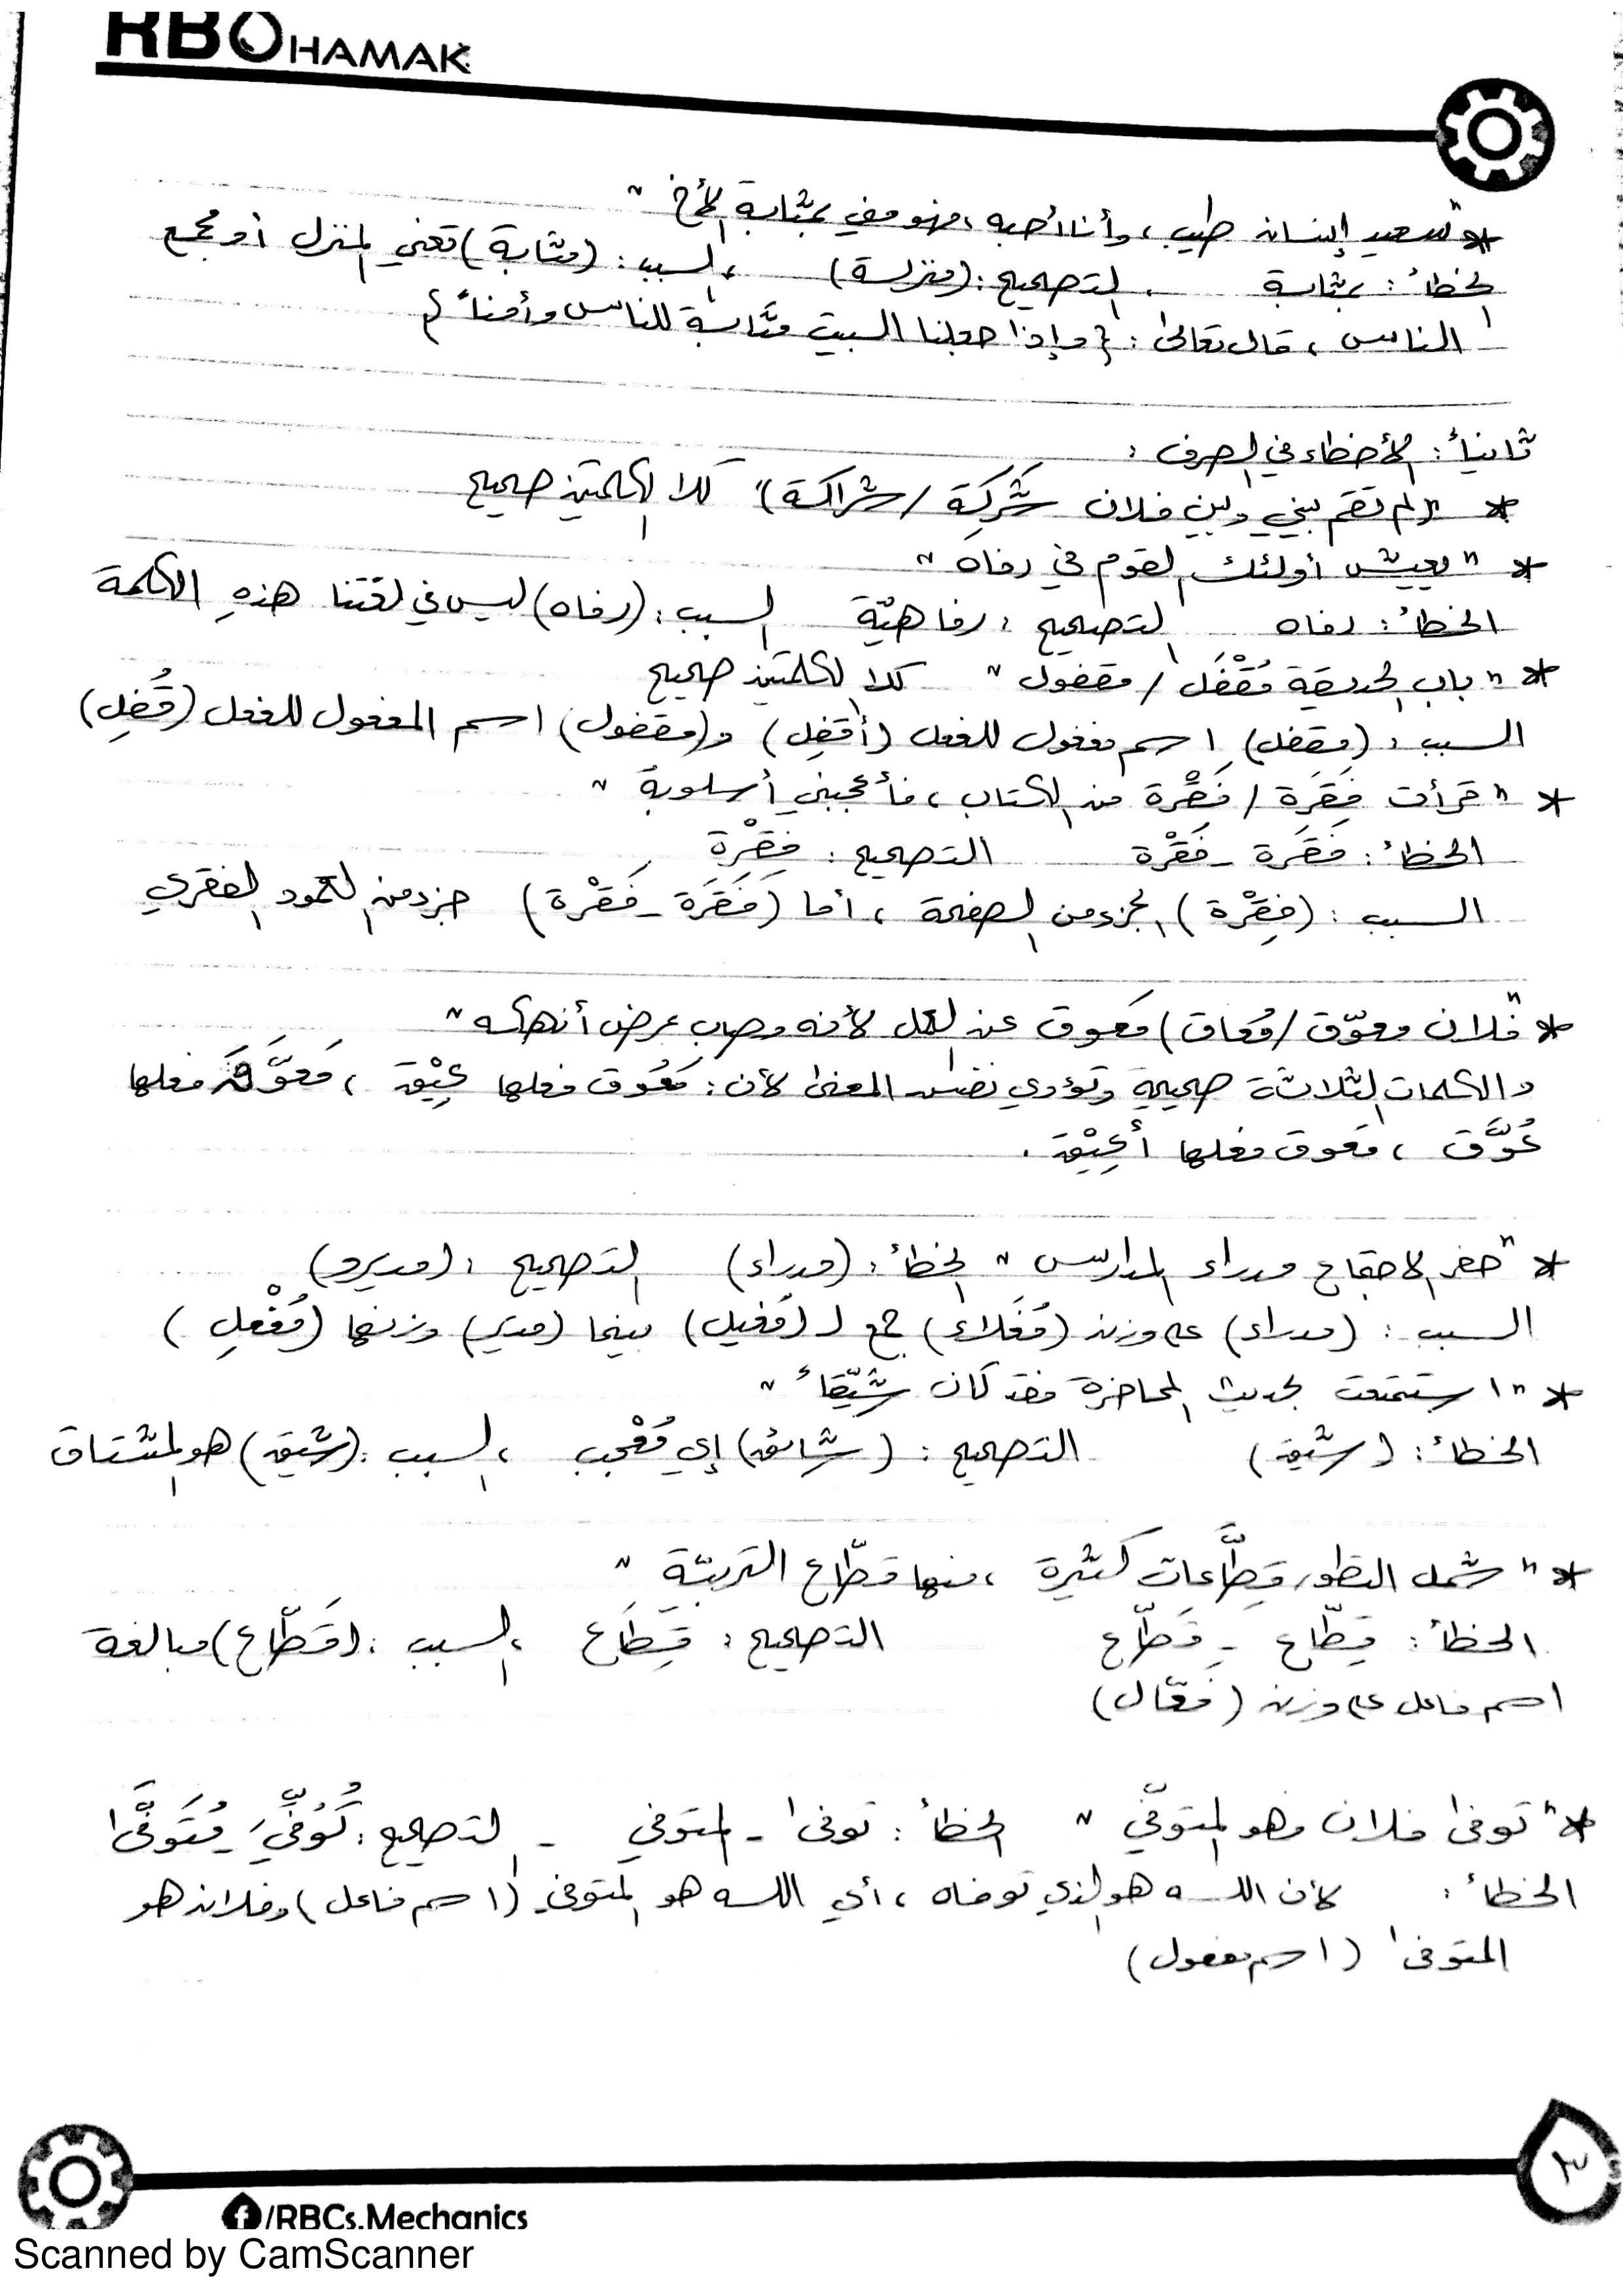 RBOHAMAK
* "سعيد إنسان طيب، وأنا أحبه، فهو مني بمثابة الأخ"
الخطأ: بمثابة ، التصحيح: (منزلة) ، السبب: (مثابة) تعني المنزل أو مجمع
الناس، قال تعالى: {وإذا جعلنا البيت مثابة للناس وأمناً}
ثانياً: الأخطاء في الصرف:
* "لم تقم بيني وبين فلان شَرِكة / شراكة" كلا الكلمتين صحيح
* "يعيش أولئك القوم في رفاه"
الخطأ: رفاه التصحيح: رفاهيّة السبب: (رفاه) ليس في لغتنا هذهِ الكلمة
* "باب الحديقة مُقْفَل / مقفول" كلا الكلمتين صحيح
السبب: (مقفل) اسم مفعول للفعل (أُقفِل) و(مقفول) اسم المفعول للفعل (قُفِل)
* "قرأت فِقَرَة / فَقْرة من الكتاب، فأعجبني أسلوبة"
الخطأ: فَقَرة - فَقْرة التصحيح: فِقْرة
السبب: (فِقْرة) الجزء من الصفحة، أما (فَقَرَة - فَقْرة) جزء من العمود الفقري
* "فلان معوّق / مُعاق) مَعوق عن العمل لأنه مصاب بمرض أنهكه"
والكلمات الثلاثة صحيحة وتؤدي نفس المعنى لأن: مَعُوق فعلها عِيْق، مُعَوَّق فعلها
عُوِّق، معوق فعلها أُعِيْق.
* "حضر الاجتماع مدراء المدارس" الخطأ: (مدراء) التصحيح: (مديرو)
السبب: (مدراء) على وزن (مُفَلاء) جمع لـ (مَفيل) بينما (مدير) وزنها (مُفْعِل)
* "استمتعت بحديث المحاضرة فقد كان شَيِّقاً"
الخطأ: (شيق) التصحيح: (شائق) إي مُعْجب ، السبب: (شيق) هو المشتاق
* "شمل التطور قِطَّاعات كثيرة، منها قطّاع التربيّة"
الخطأ: قِطّاع - قَطّاع التصحيح: قِطَاع ، السبب: (قَطّاع) مبالغة
اسم فاعل على وزن (فَعّال)
* "توفى فلان فهو المتوفّي" الخطأ: توفى - المتوفي - التصحيح: تُوُفِّيَ - مُتَوَفَّى
الخطأ: لأن الله هو الذي توفاه، أي الله هو المتوفي (اسم فاعل) وفلان هو
المتوفى (اسم مفعول)
٣
/RBCs.Mechanics
Scanned by CamScanner